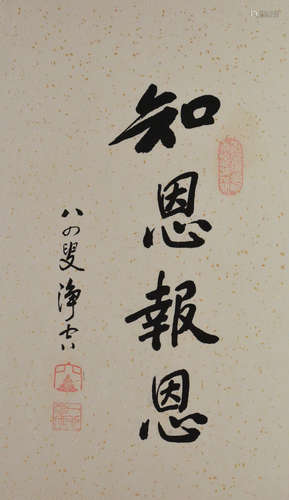 知恩報恩
八四叟淨空